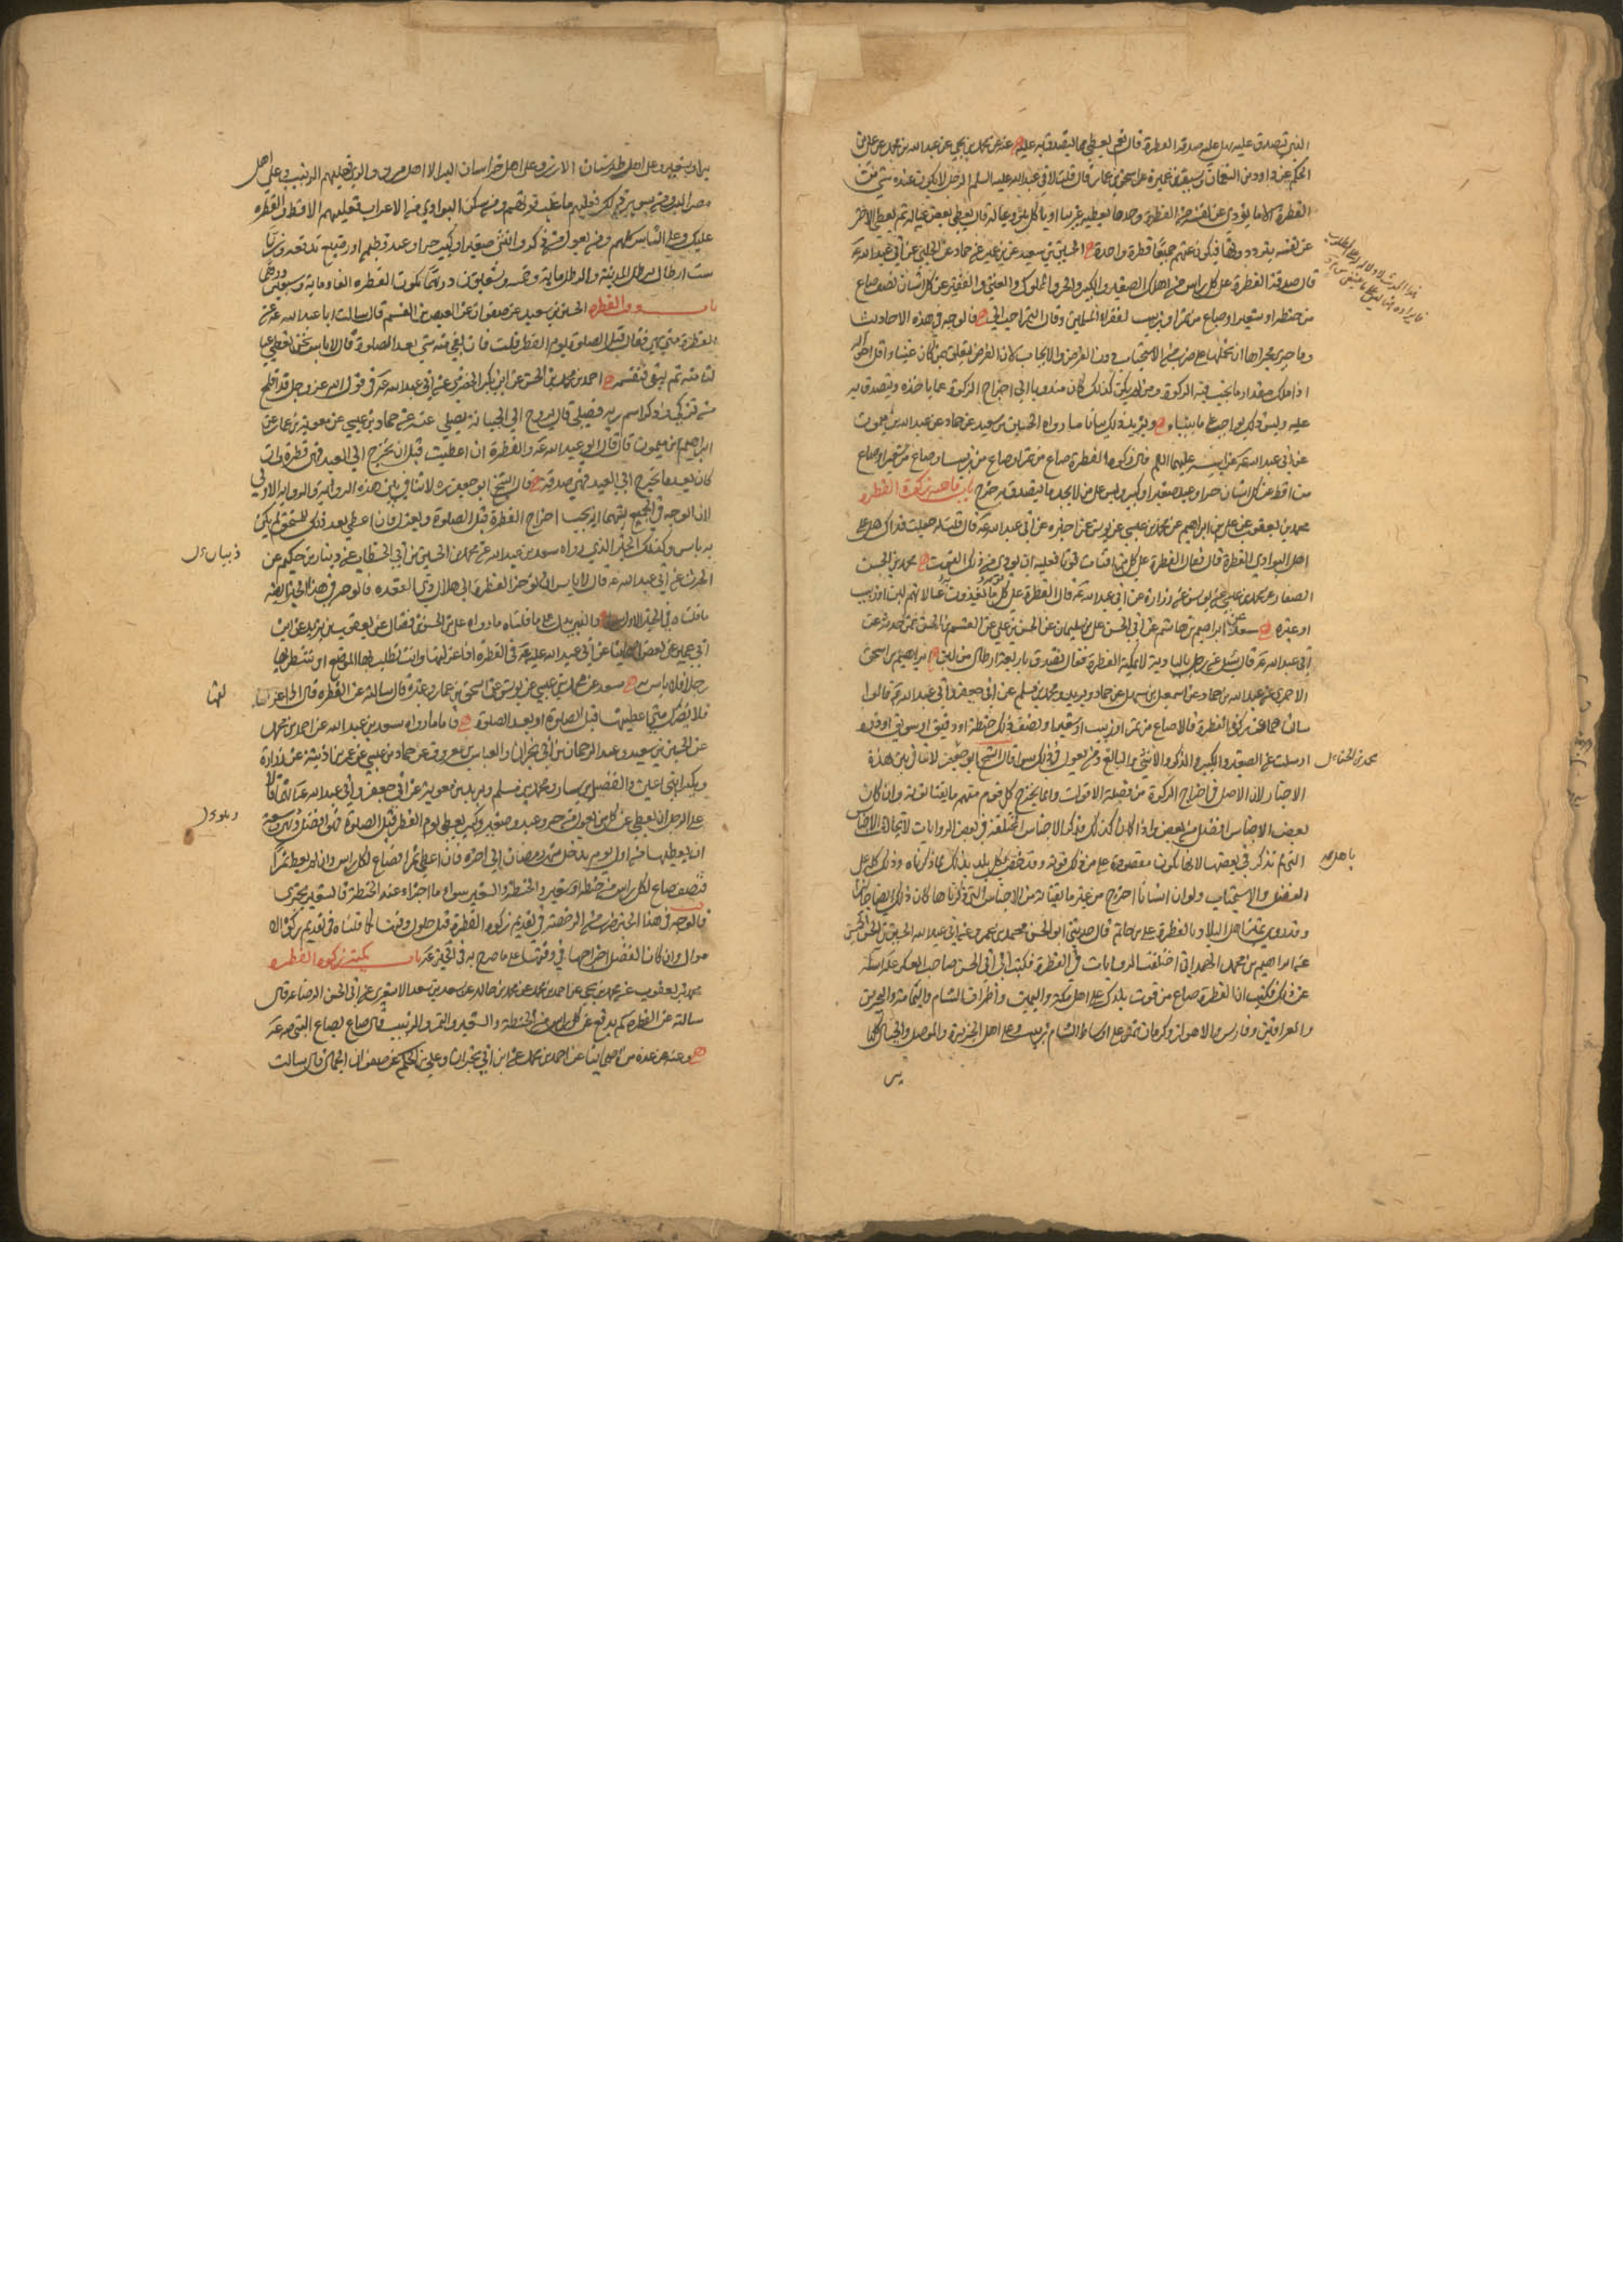 الذي تصدق عليه هل عليه صدقة الفطرة قال نعم يعطي مما يتصدق به عليه عنه عن محمد بن يحيى عن عبد الله بن محمد عن علي بن
الحكم عن داود بن النعمان وسيف بن عميرة عن اسحق بن عمار قال قلت لابي عبد الله عليه السلم الرجل لا يكون عنده شيء من
الفطرة الا ما يؤدي عن نفسه من الفطرة وحدها يعطيه غريبا او ياكل هو وعياله قال يعطي بعض عياله ثم يعطي الاخر
عن نفسه يترددونها فيكون عنهم جميعا فطرة واحدة الحسين بن سعيد عن حماد عن الحلبي عن ابي عبد الله ع
قال صدقة الفطرة على كل راس من اهلك الصغير والكبير والحر والمملوك والغني والفقير عن كل انسان نصف صاع
من حنطة او شعير او صاع من تمر او زبيب لفقراء المسلمين وقال التمر احب الي فالوجه في هذه الاحاديث
وما جرى مجراها ان نحملها على ضرب من الاستحباب دون الفرض والايجاب لان الفرض يتعلق بمن كان غنيا واقل احواله
اذا ملك مقدار ما يجب فيه الزكوة ومن لم يكن كذلك كان مندوبا الى اخراج الزكوة عما ياخذه ويتصدق به
عليه وليس ذلك بواجب على ما بيناه ويزيد ذلك بيانا ما رواه الحسين بن سعيد عن حماد عن عبد الله بن ميمون
عن ابي عبد الله ع عن ابيه عليهما السلم قال زكوة الفطرة صاع من تمر او صاع من زبيب او صاع من شعير او صاع
من اقط عن كل انسان حر او عبد صغير او كبير وليس على من لا يجد ما يتصدق به حرج باب ماهية زكوة الفطرة
محمد بن يعقوب عن علي بن ابراهيم عن محمد بن عيسى عن يونس عمن ذكره عن ابي عبد الله ع قال قلت له جعلت فداك هل على
اهل البوادي الفطرة قال فقال الفطرة على كل من اقتات قوتا فعليه ان يؤدي من ذلك القوت محمد بن الحسن
الصفار عن محمد بن عيسى عن يونس عن زرارة عن ابي عبد الله ع قال الفطرة على كل قوم مما يغذون عيالاتهم لبن او زبيب
او غيره سعد عن ابراهيم بن هاشم عن ابي الحسن علي بن سليمان عن الحسن بن علي عن القسم بن الحسن عمن حدثه عن
ابي عبد الله ع قال سئل عن رجل بالبادية لا يمكنه الفطرة فقال تصدق باربعة ارطال من لبن ابراهيم بن اسحق
الاحمري عن عبد الله بن حماد عن اسمعيل بن سهل عن حماد وبريد ومحمد بن مسلم عن ابي جعفر وابي عبد الله ع قالوا
سالناهما عن زكوة الفطرة قالا صاع من تمر او زبيب او شعير او نصف ذلك حنطة او دقيق او سويق او ذرة
او سلت عن الصغير والكبير والذكر والانثى والبالغ ومن تعول في ذلك سواء قال الشيخ ابو جعفر لا تنافي بين هذه
الاخبار لان الاصل في اخراج الزكوة من فضلة الاقوات وانما يخرج كل قوم منهم ما يقتاتونه وان كان
بعض الاجناس افضل من بعض واذا كان كذلك فذكر الاجناس المختلفة في بعض الروايات
التي لم تذكر في بعضها لانها تكون مقصورة على من ذلك قوته وقد خص كل بلد بذلك مما ذكرناه وذلك كله على
الفضل والاستحباب ولو ان انسانا اخرج من غير ما يقتاته من الاجناس التي ذكرناها كان ذلك ايضا جايزا
وقد روي تميز اهل البلاد بالفطرة علي بن حاتم قال حدثني ابو الحسن محمد بن عمرو عن ابي عبد الله الحسين بن الحسن الحسني
عن ابراهيم بن محمد الهمداني اختلفت الروايات في الفطرة فكتبت الى ابي الحسن صاحب العسكر ع اساله
عن ذلك فكتب ان الفطرة صاع من قوت بلدك على اهل مكة واليمن واطراف الشام واليمامة والبحرين
والعراقين وفارس والاهواز وكرمان تمر وعلى اوساط الشام زبيب وعلى اهل الجزيرة والموصل والجبال كلها
بر
محمد بن الحسن ل
بر او شعير وعلى اهل طبرستان الارز وعلى اهل خراسان البر الا اهل مرو والري فعليهم الزبيب وعلى اهل
مصر البر ومن سوى ذلك فعليهم ما غلب قوتهم ومن سكن البوادي من الاعراب فعليهم الاقط والفطرة
عليك وعلى الناس كلهم ومن تعول من ذكر او انثى صغير او كبير حر او عبد فطيم او رضيع تدفعه وزنا
ستة ارطال برطل المدينة والرطل مائة وخمسة وتسعون درهما تكون الفطرة الفا ومائة وسبعين درهما
باب وقت الفطرة الحسين بن سعيد عن صفوان عن العيص بن القسم قال سالت ابا عبد الله ع عن
الفطرة متى هي فقال قبل الصلوة يوم الفطر قلت فان بقي منه شيء بعد الصلوة قال لا باس نحن نعطي عيالنا
منه ثم يبقى فنقسمه احمد بن محمد بن الحسن عن ابي بكر الحضرمي عن ابي عبد الله ع في قول الله عز وجل قد افلح
من تزكى وذكر اسم ربه فصلى قال يروح الى الجبانة فيصلي عنه عن حماد بن عيسى عن معوية بن عمار عن
ابراهيم بن ميمون قال قال ابو عبد الله ع الفطرة ان اعطيت قبل ان تخرج الى العيد فهي فطرة وان
كان بعد ما تخرج الى العيد فهي صدقة قال الشيخ ابو جعفر ره لا تنافي بين هذه الرواية والرواية الاولى
لان الوجه في الجمع بينهما انه يجب اخراج الفطرة قبل الصلوة
به باس وكذلك الخبر الذي رواه سعد بن عبد الله عن محمد بن الحسين بن ابي الخطاب عن ذبيان بن حكيم عن
الحرث عن ابي عبد الله ع قال لا باس ان تؤخر الفطرة الى هلال ذي القعدة فالوجه في هذا الخبر ايضا
ما قلناه في الخبر الاول والذي يدل على ما قلناه ما رواه علي بن الحسن بن فضال عن يعقوب بن يزيد عن ابن
ابي عمير عن بعض اصحابنا عن ابي عبد الله ع في الفطرة اذا عزلتها وانت تطلب بها الموضع او تنتظر بها
رجلا فلا باس به سعد عن محمد بن عيسى عن يونس عن اسحق بن عمار وغيره قال سالته عن الفطرة قال اذا عزلتها
فلا يضرك متى اعطيتها قبل الصلوة او بعد الصلوة فاما ما رواه سعد بن عبد الله عن احمد بن محمد
عن الحسين بن سعيد وعبد الرحمان بن ابي نجران والعباس بن معروف عن حماد بن عيسى عن عمر بن اذينة عن زرارة
وبكير ابني اعين والفضيل بن يسار ومحمد بن مسلم وبريد بن معوية عن ابي جعفر وابي عبد الله ع انهما قالا
على الرجل ان يعطي عن كل من يعول من حر وعبد وصغير وكبير يعطي يوم الفطر قبل الصلوة فهو افضل وهو في سعة
ان يعطيها من اول يوم يدخل من شهر رمضان الى اخره فان اعطى تمرا فصاع لكل راس وان لم يعط تمرا
فنصف صاع لكل راس من حنطة او شعير والحنطة والشعير سواء ما اجزاء عنه الحنطة فالشعير يجزي
فالوجه في هذا الخبر ضرب من الرخصة في تقديم زكوة الفطرة قبل حلول وقتها كما قلناه في تقديم زكوة الا
موال وان كان الفضل اخراجها في وقتها على ما صرح به في الخبر ع باب كمية زكوة الفطرة
محمد بن يعقوب عن محمد بن يحيى عن احمد بن محمد عن محمد بن خالد عن سعد بن سعد الاشعري عن ابي الحسن الرضا ع قال
سالته عن الفطرة كم يدفع عن كل راس من الحنطة والشعير والتمر والزبيب قال صاع بصاع النبي ص ع
وعنه عن عدة من اصحابنا عن احمد بن محمد عن ابن ابي نجران وعلي بن الحكم عن صفوان الجمال قال سالت
ذبيان ل
لها